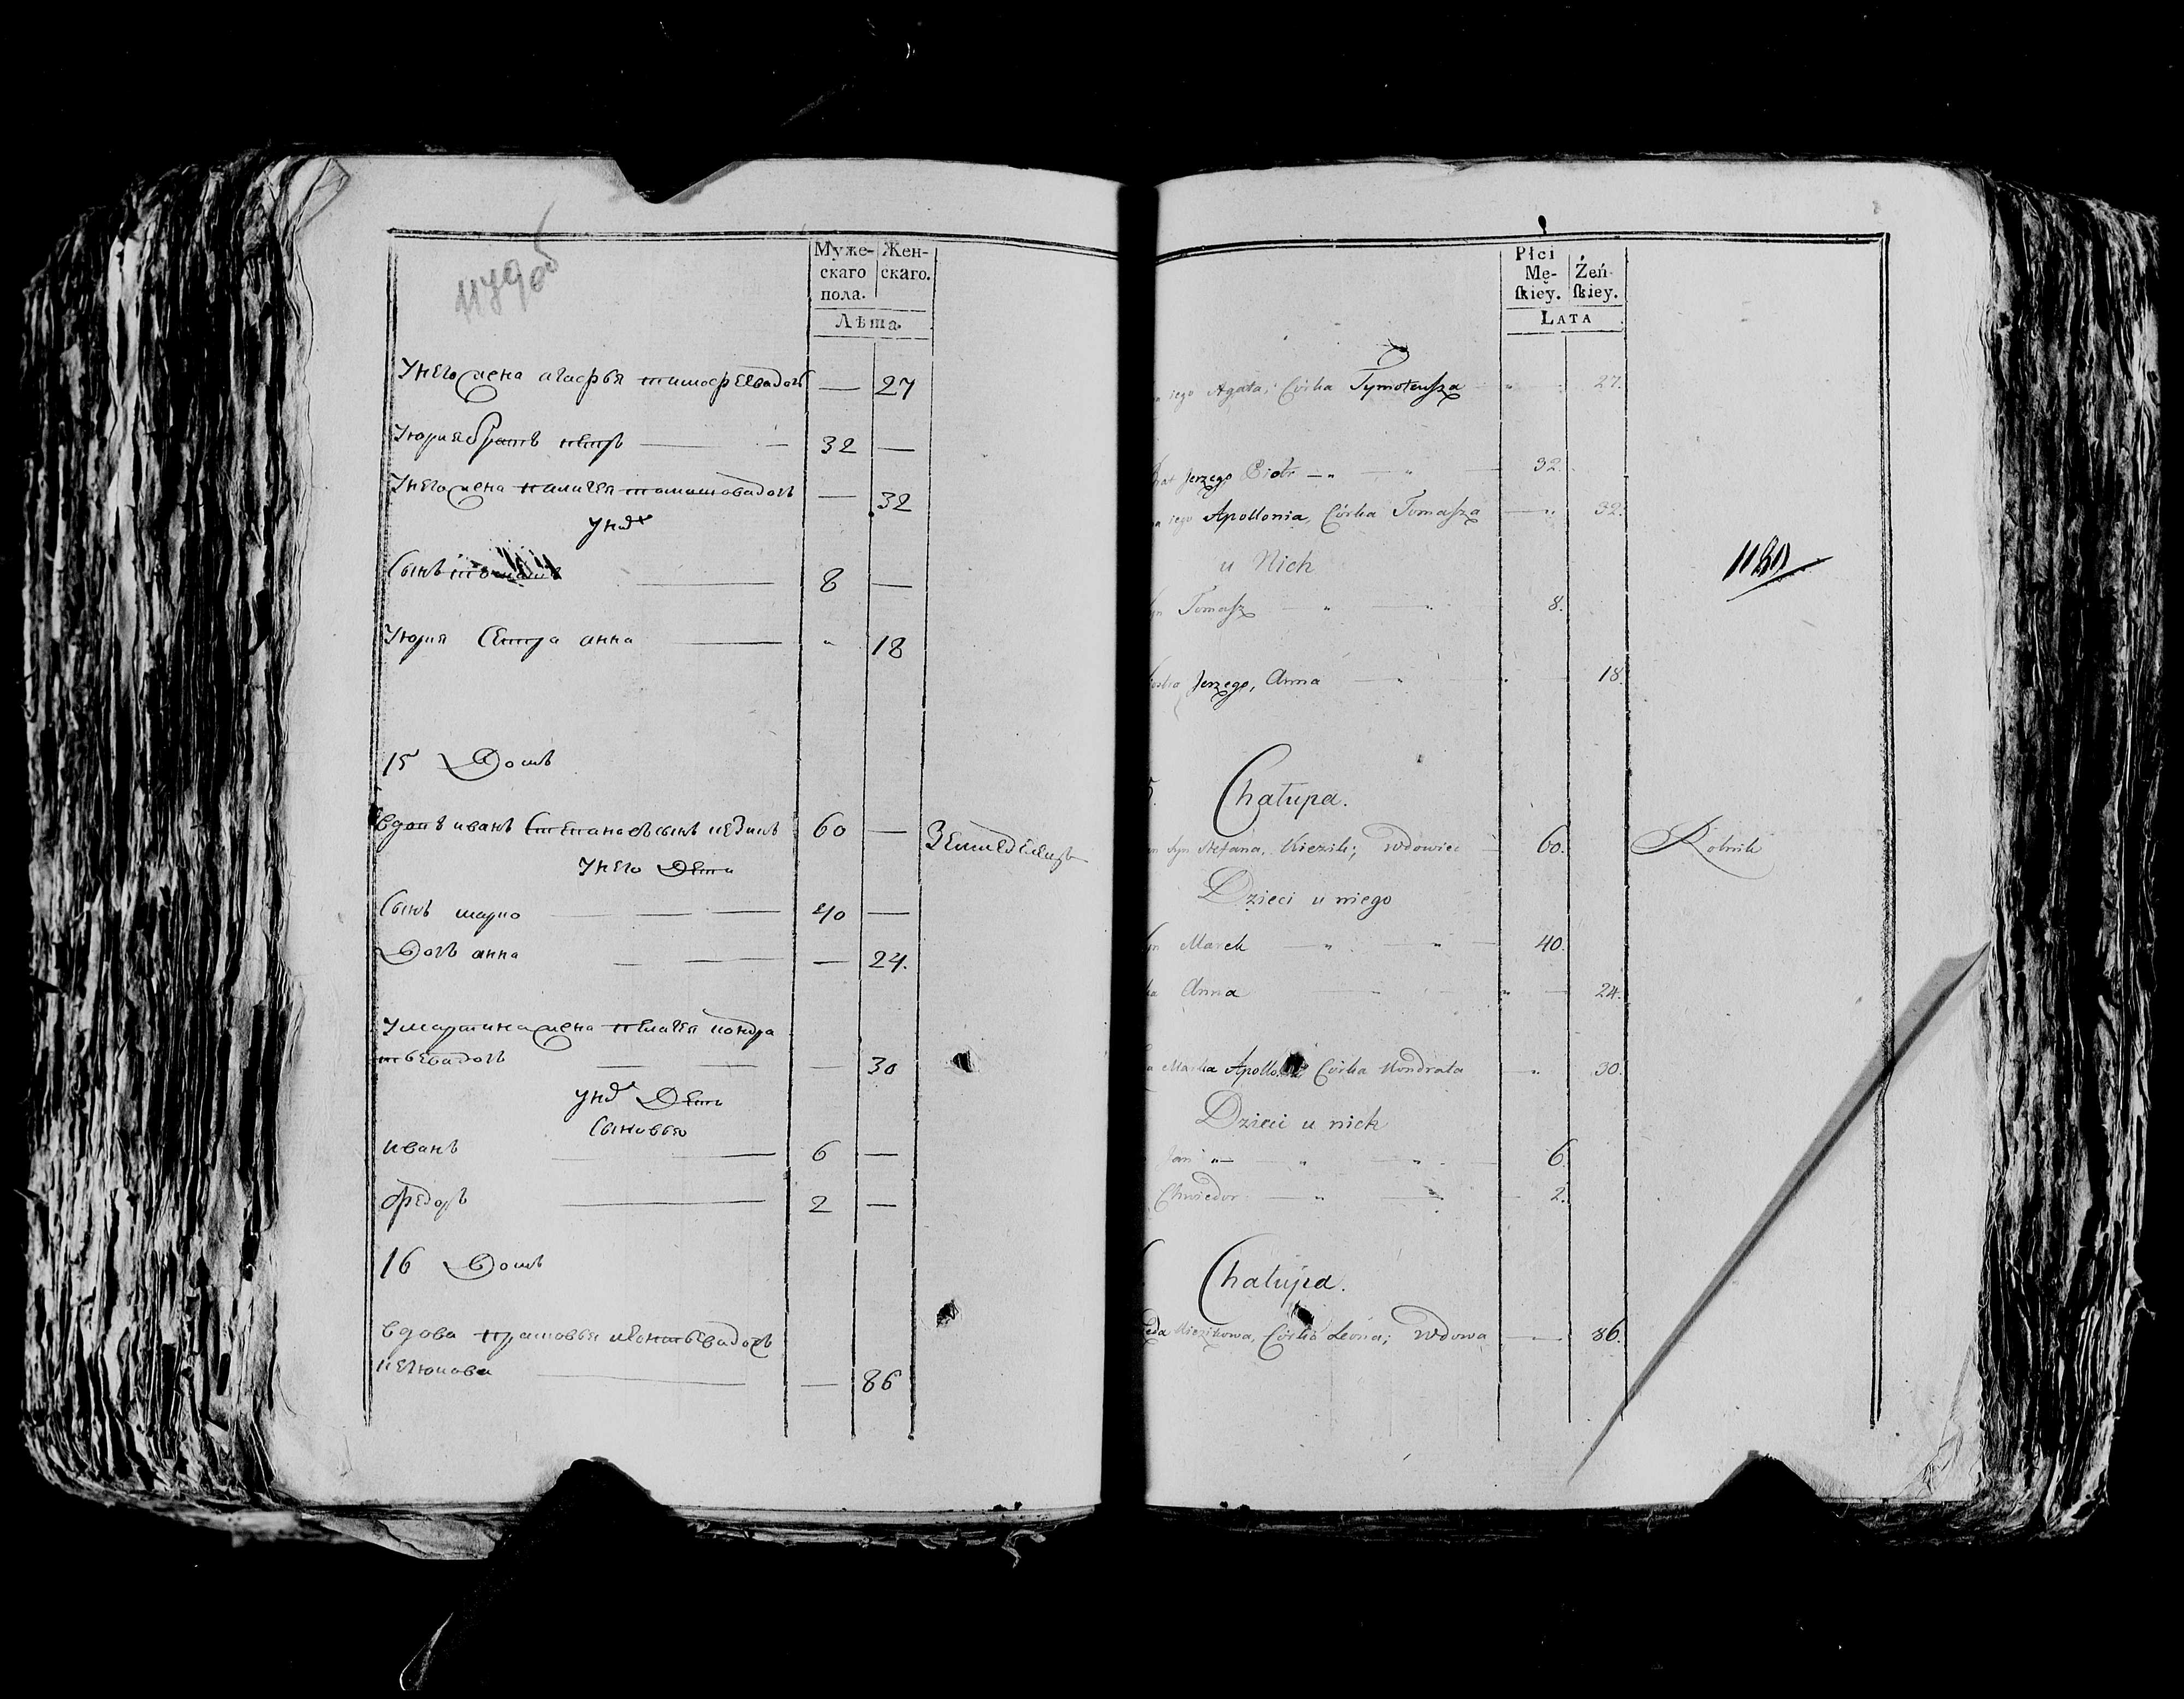 1179 об
Муже-
скаго
пола.
Жен-
скаго.
Лѣта.
У него жена агафья тимофеева дочь — 27
У юрия братъ петръ — 32 —
У него жена палагея томашова дочь — 32
У них
Сынъ томашъ — 8 —
У юрия Сестра анна — „ 18
15 Домъ
вдовъ иванъ Степановъ сынъ 60 — Земледелецъ
У него Дети
Сынъ марко — 40 —
Дочь анна — — 24.
У мартина жена пелагея кондра
тьева дочь — — 30
У них Дети
Сыновья
иванъ — 6 —
федоръ — 2 —
16 Домъ
вдова прасовья леонтьева дочь
— 86
Płci
Mę-
skiey.
Żeń-
skiey.
LATA
iego Agata; Córka Tymoteusza „ 27.
Jerzego Piotr — „ — 32.
iego Apollonia, Córka Tomasza — „ 32.
u Nich
1180
Tomasz — „ — „ — 8.
Jerzego, Anna — „ — „ — 18.
Chałupa.
Syn Stefana, Kiezik; Wdowiec — 60. Rolnik
Dzieci u niego
Marek — „ — „ — 40.
Anna — „ — 24.
Marka Apollonia Córka Kondrata — „ 30.
Dzieci u nich
Jan „ — „ — „ — 6.
Chwiedor — „ — „ — 2.
Chałupa.
Kiezikowa, Córka Leona; Wdowa — 86.